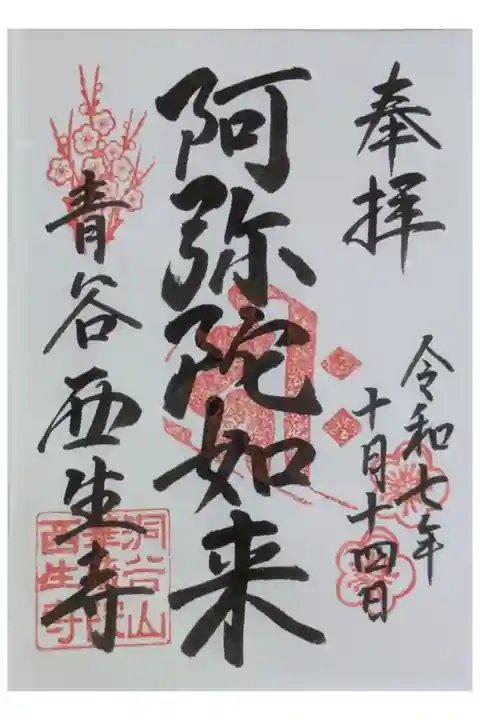 奉拝
令和七年
十月十四日
阿弥陀如来
青谷西生寺
洞谷山
西生寺